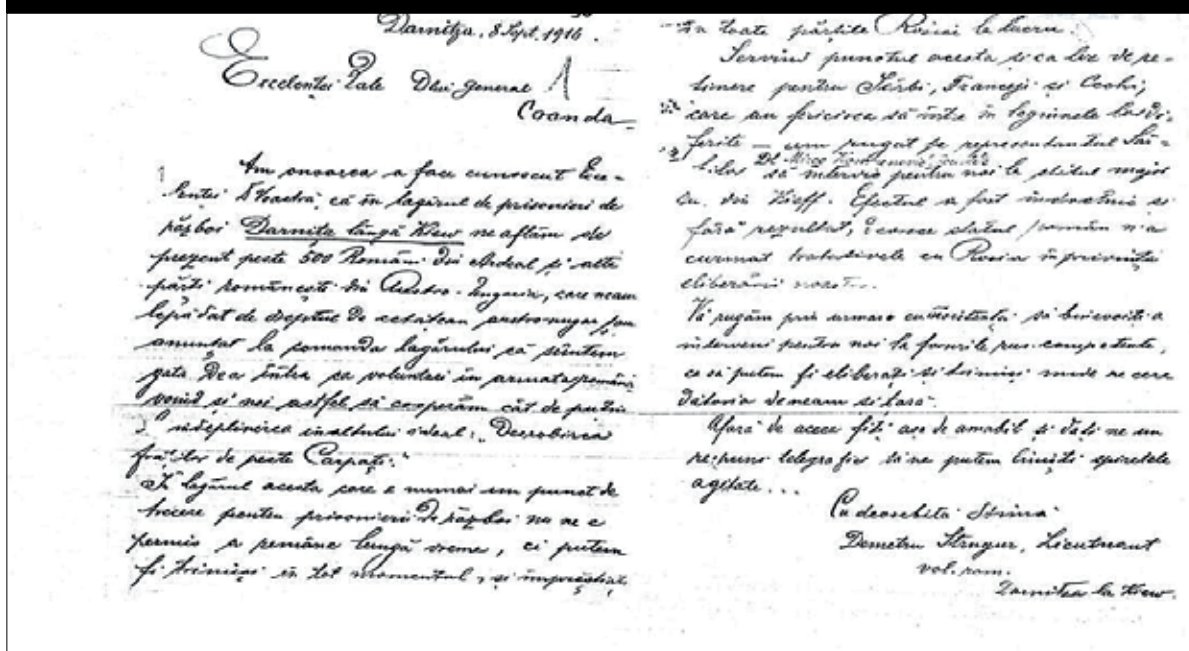 Darnitza, 8 Sept. 1916.
Excelenței Tale Dlui General
Coanda
Am onoarea a face cunoscut Exce-
lenței Voastră, că în lagărul de prisonieri de
război Darnița lângă Kiew ne aflăm de
prezent peste 500 Români din Ardeal și alte
părți românești din Austro-Ungaria, care neam
lepădat de dreptul de cetățean austro-ungar și am
anunțat la comanda lagărului că sîntem
gata de a întra ca voluntari în armata română
voind și noi astfel să cooperăm cât de puțin
îndeplinirea înaltului ideal: „Desrobirea
fraților de peste Carpați."
În lagărul acesta care e numai un punct de
trecere pentru prisonierii de război nu ne e
permis a remâne lungă vreme, ci putem
fi trimiși în tot momentul, și împrăștiați
în toate părțile Rusiei la lucru.
Servind punctul acesta și ca loc de re-
ținere pentru Sârbi, Franceji și Cechi,
care au fericirea să între în legiunele lor di-
ferite – am rugat pe representantul Sâr-
bilor Dl Mirco
să intervie pentru noi la statul major
din Kieff. Efectul a fost și
fără rezultat, deoarece statul român n'a
curmat tratativele cu Rusia în privința
eliberării noastre.
Vă rugăm prin urmare să binevoiți a
interveni pentru noi la forurile rus. competente,
ca să putem fi eliberați și trimiși unde ne cere
datoria de neam și țară.
Afară de aceea fiți așa de amabil și dați ne un
respuns telegrafic să ne putem liniști spiretele
agitate...
Cu deosebita Stima
Demetru Strugur, Lieutnant
vol. rom.
Darnitza la Kiew.